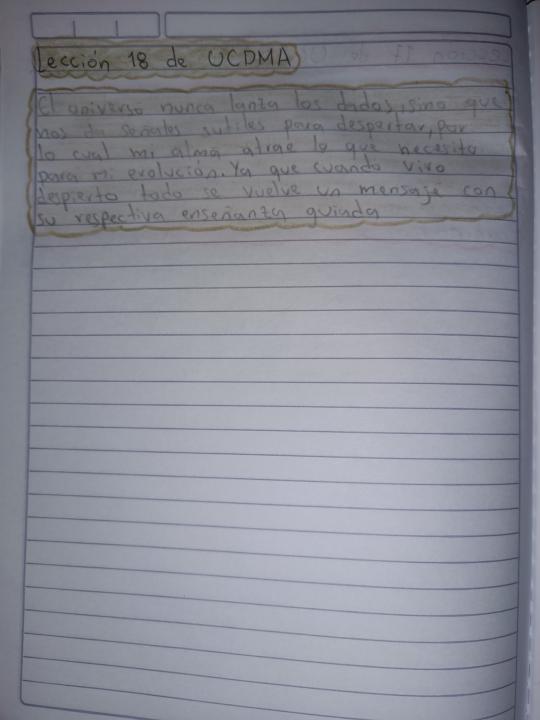 Lección 18 de UCDMA
El universo nunca lanza los dados, sino que
nos da señales sutiles para despertar, por
lo cual mi alma atrae lo que necesito
para mi evolución. Ya que cuando vivo
despierto todo se vuelve un mensaje con
su respectiva enseñanza guiada